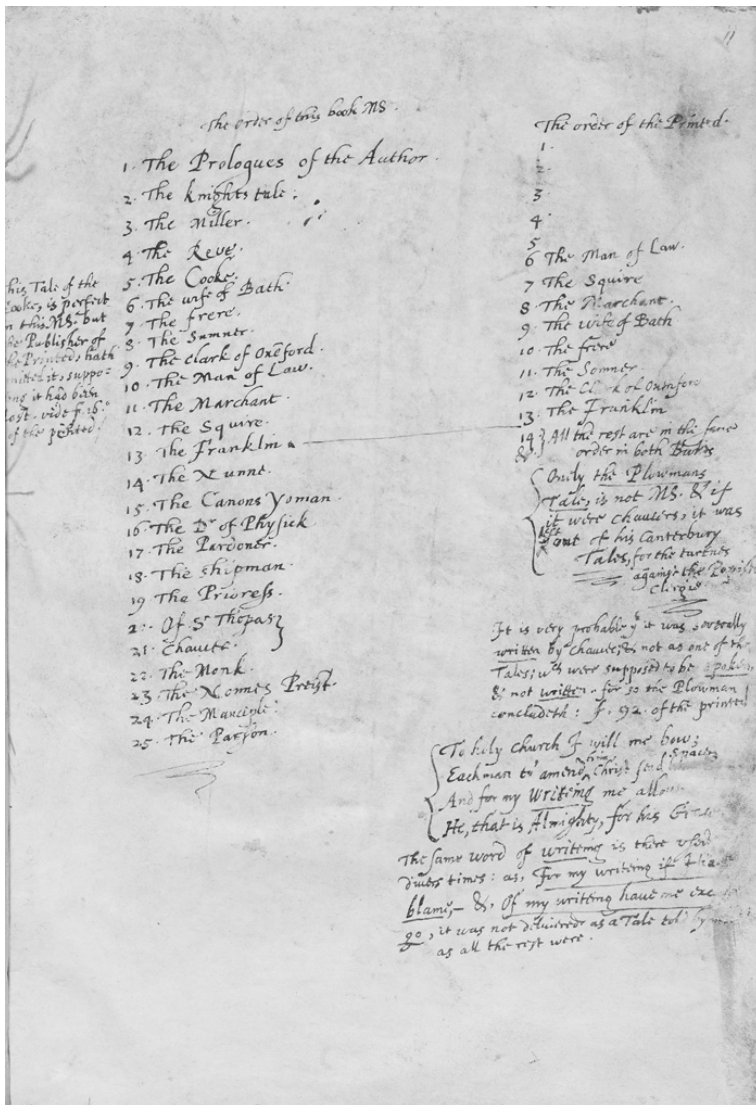 11
The order of this book MS.
1. The Prologues of the Author.
2. The knights tale.
3. The Miller.
4. The Reve.
5. The Cooke.
6. The wife of Bath.
7. The frere.
8. The Sumner.
9. The Clark of Oxeford.
10. The Man of Law.
11. The Marchant.
12. The Squire.
13. The Franklin.
14. The Nunne.
15. The Canons Yoman.
16. The Dr of Physick
17. The Pardoner.
18. The shipman.
19. The Prioress.
20. Of Sr Thopas
21. Chaucer
22. The Monk.
23. The Nonnes Preist.
24. The Manciple.
25. The Parson.
his Tale of the
Cooke, is perfect
in this MS. but
the Publisher of
the Printed, hath
omitted it, suppo-
ing it had been
lost. vide f. 16.
of the printed.
The order of the Printed.
1.
2.
3
4
5
6 The Man of Law.
7 The Squire
8. The Marchant.
9. The wife of Bath
10. The frere
11. The Somner
12. The Clark of Oxenford
13. The Franklin
14 } All the rest are in the same
&c. order in both Books
Onely the Plowmans
Tale, is not MS. & if
it were chaucers, it was
left out of his Canterbury
Tales, for the tartnes
against the Popish
Clergie
It is very probable yt it was severally
written by Chaucer, & not as one of the
Tales; wch were supposed to be spoken
& not written. for so the Plowman
concludeth: f. 92. of the printed
To holy church I will me bow;
Each man to amend him Christ send space
And for my writeing me allow
He, that is Almighty, for his Grace
The same word of writeing is there used
divers times: as, For my writeing if I
blame, &, Of my writeing have me
go, it was not delivered as a Tale told by
as all the rest were.